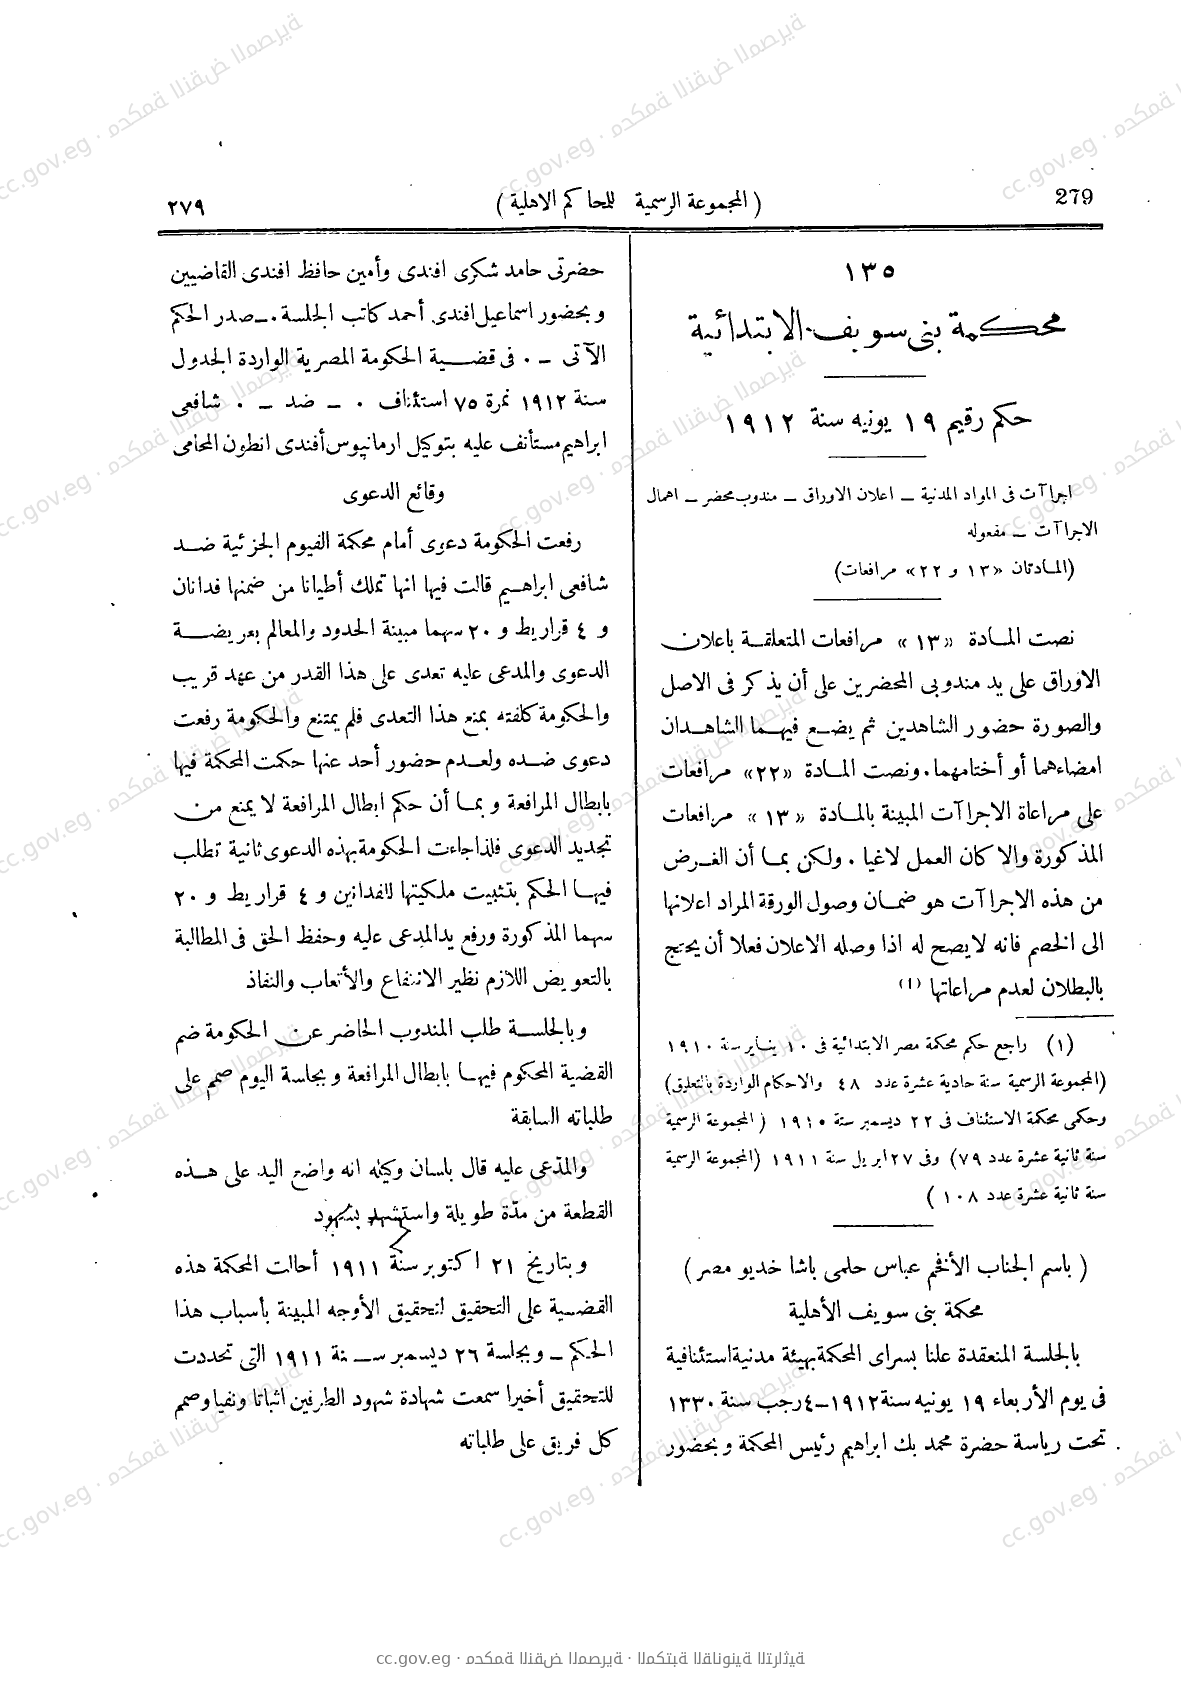 279
( المجموعة الرسمية للمحاكم الاهلية )
٢٧٩
١٣٥
محكمة بنى سويف الابتدائية
حكم رقيم ١٩ يونيه سنة ١٩١٢
اجراآت فى المواد المدنية – اعلان الاوراق – مندوب محضر – اهمال
الاجراآت – مفعوله
(المادتان «١٣ و ٢٢» مرافعات)
نصت المادة «١٣» مرافعات المتعلقة باعلان
الاوراق على يد مندوبى المحضرين على أن يذكر فى الاصل
والصورة حضور الشاهدين ثم يضع فيهما الشاهدان
امضاءهما أو أختامهما. ونصت المادة «٢٢» مرافعات
على مراعاة الاجراآت المبينة بالمادة «١٣» مرافعات
المذكورة والا كان العمل لاغيا . ولكن بما أن الغرض
من هذه الاجراآت هو ضمان وصول الورقة المراد اعلانها
الى الخصم فانه لا يصح له اذا وصله الاعلان فعلا أن يحتج
بالبطلان لعدم مراعاتها (١)
(١) راجع حكم محكمة مصر الابتدائية فى ١٠ يناير سنة ١٩١٠
(المجموعة الرسمية سنة حادية عشرة عدد ٤٨ والاحكام الواردة بالتعليق)
وحكمى محكمة الاستئناف فى ٢٢ ديسمبر سنة ١٩١٠ ( المجموعة الرسمية
سنة ثانية عشرة عدد ٧٩) وفى ٢٧ ابريل سنة ١٩١١ (المجموعة الرسمية
سنة ثانية عشرة عدد ١٠٨ )
( باسم الجناب الأفخم عباس حلمى باشا خديو مصر )
محكمة بنى سويف الأهلية
بالجلسة المنعقدة علنا بسراى المحكمة بهيئة مدنية استئنافية
فى يوم الأربعاء ١٩ يونيه سنة ١٩١٢–٤ رجب سنة ١٣٣٠
تحت رياسة حضرة محمد بك ابراهيم رئيس المحكمة وبحضور
حضرتى حامد شكرى افندى وأمين حافظ افندى القاضيين
وبحضور اسماعيل افندى أحمد كاتب الجلسة .– صدر الحكم
الآتى – . فى قضية الحكومة المصرية الواردة الجدول
سنة ١٩١٢ نمرة ٧٥ استئناف . – ضد – . شافعى
ابراهيم مستأنف عليه بتوكيل ارمانيوس أفندى انطون المحامى
وقائع الدعوى
رفعت الحكومة دعوى أمام محكمة الفيوم الجزئية ضد
شافعى ابراهيم قالت فيها انها تملك أطيانا من ضمنها فدانان
و ٤ قراريط و ٢٠ سهما مبينة الحدود والمعالم بعريضة
الدعوى والمدعى عليه تعدى على هذا القدر من عهد قريب
والحكومة كلفته بمنع هذا التعدى فلم يمتنع والحكومة رفعت
دعوى ضده ولعدم حضور أحد عنها حكمت المحكمة فيها
بابطال المرافعة وبما أن حكم ابطال المرافعة لا يمنع من
تجديد الدعوى فلذا جاءت الحكومة بهذه الدعوى ثانية تطلب
فيها الحكم بتثبيت ملكيتها للفدانين و ٤ قراريط و ٢٠
سهما المذكورة ورفع يد المدعى عليه وحفظ الحق فى المطالبة
بالتعويض اللازم نظير الانتفاع والأتعاب والنفاذ
وبالجلسة طلب المندوب الحاضر عن الحكومة ضم
القضية المحكوم فيها بابطال المرافعة وبجلسة اليوم صمم على
طلباته السابقة
والمدّعى عليه قال بلسان وكيله انه واضع اليد على هذه
القطعة من مدّة طويلة واستشهد بشهود
وبتاريخ ٢١ اكتوبر سنة ١٩١١ أحالت المحكمة هذه
القضية على التحقيق لتحقيق الأوجه المبينة بأسباب هذا
الحكم – وبجلسة ٢٦ ديسمبر سنة ١٩١١ التى تحددت
للتحقيق أخيرا سمعت شهادة شهود الطرفين اثباتا ونفيا وصمم
كل فريق على طلباته
cc.gov.eg · محكمة النقض المصرية · المكتبة القانونية التراثية